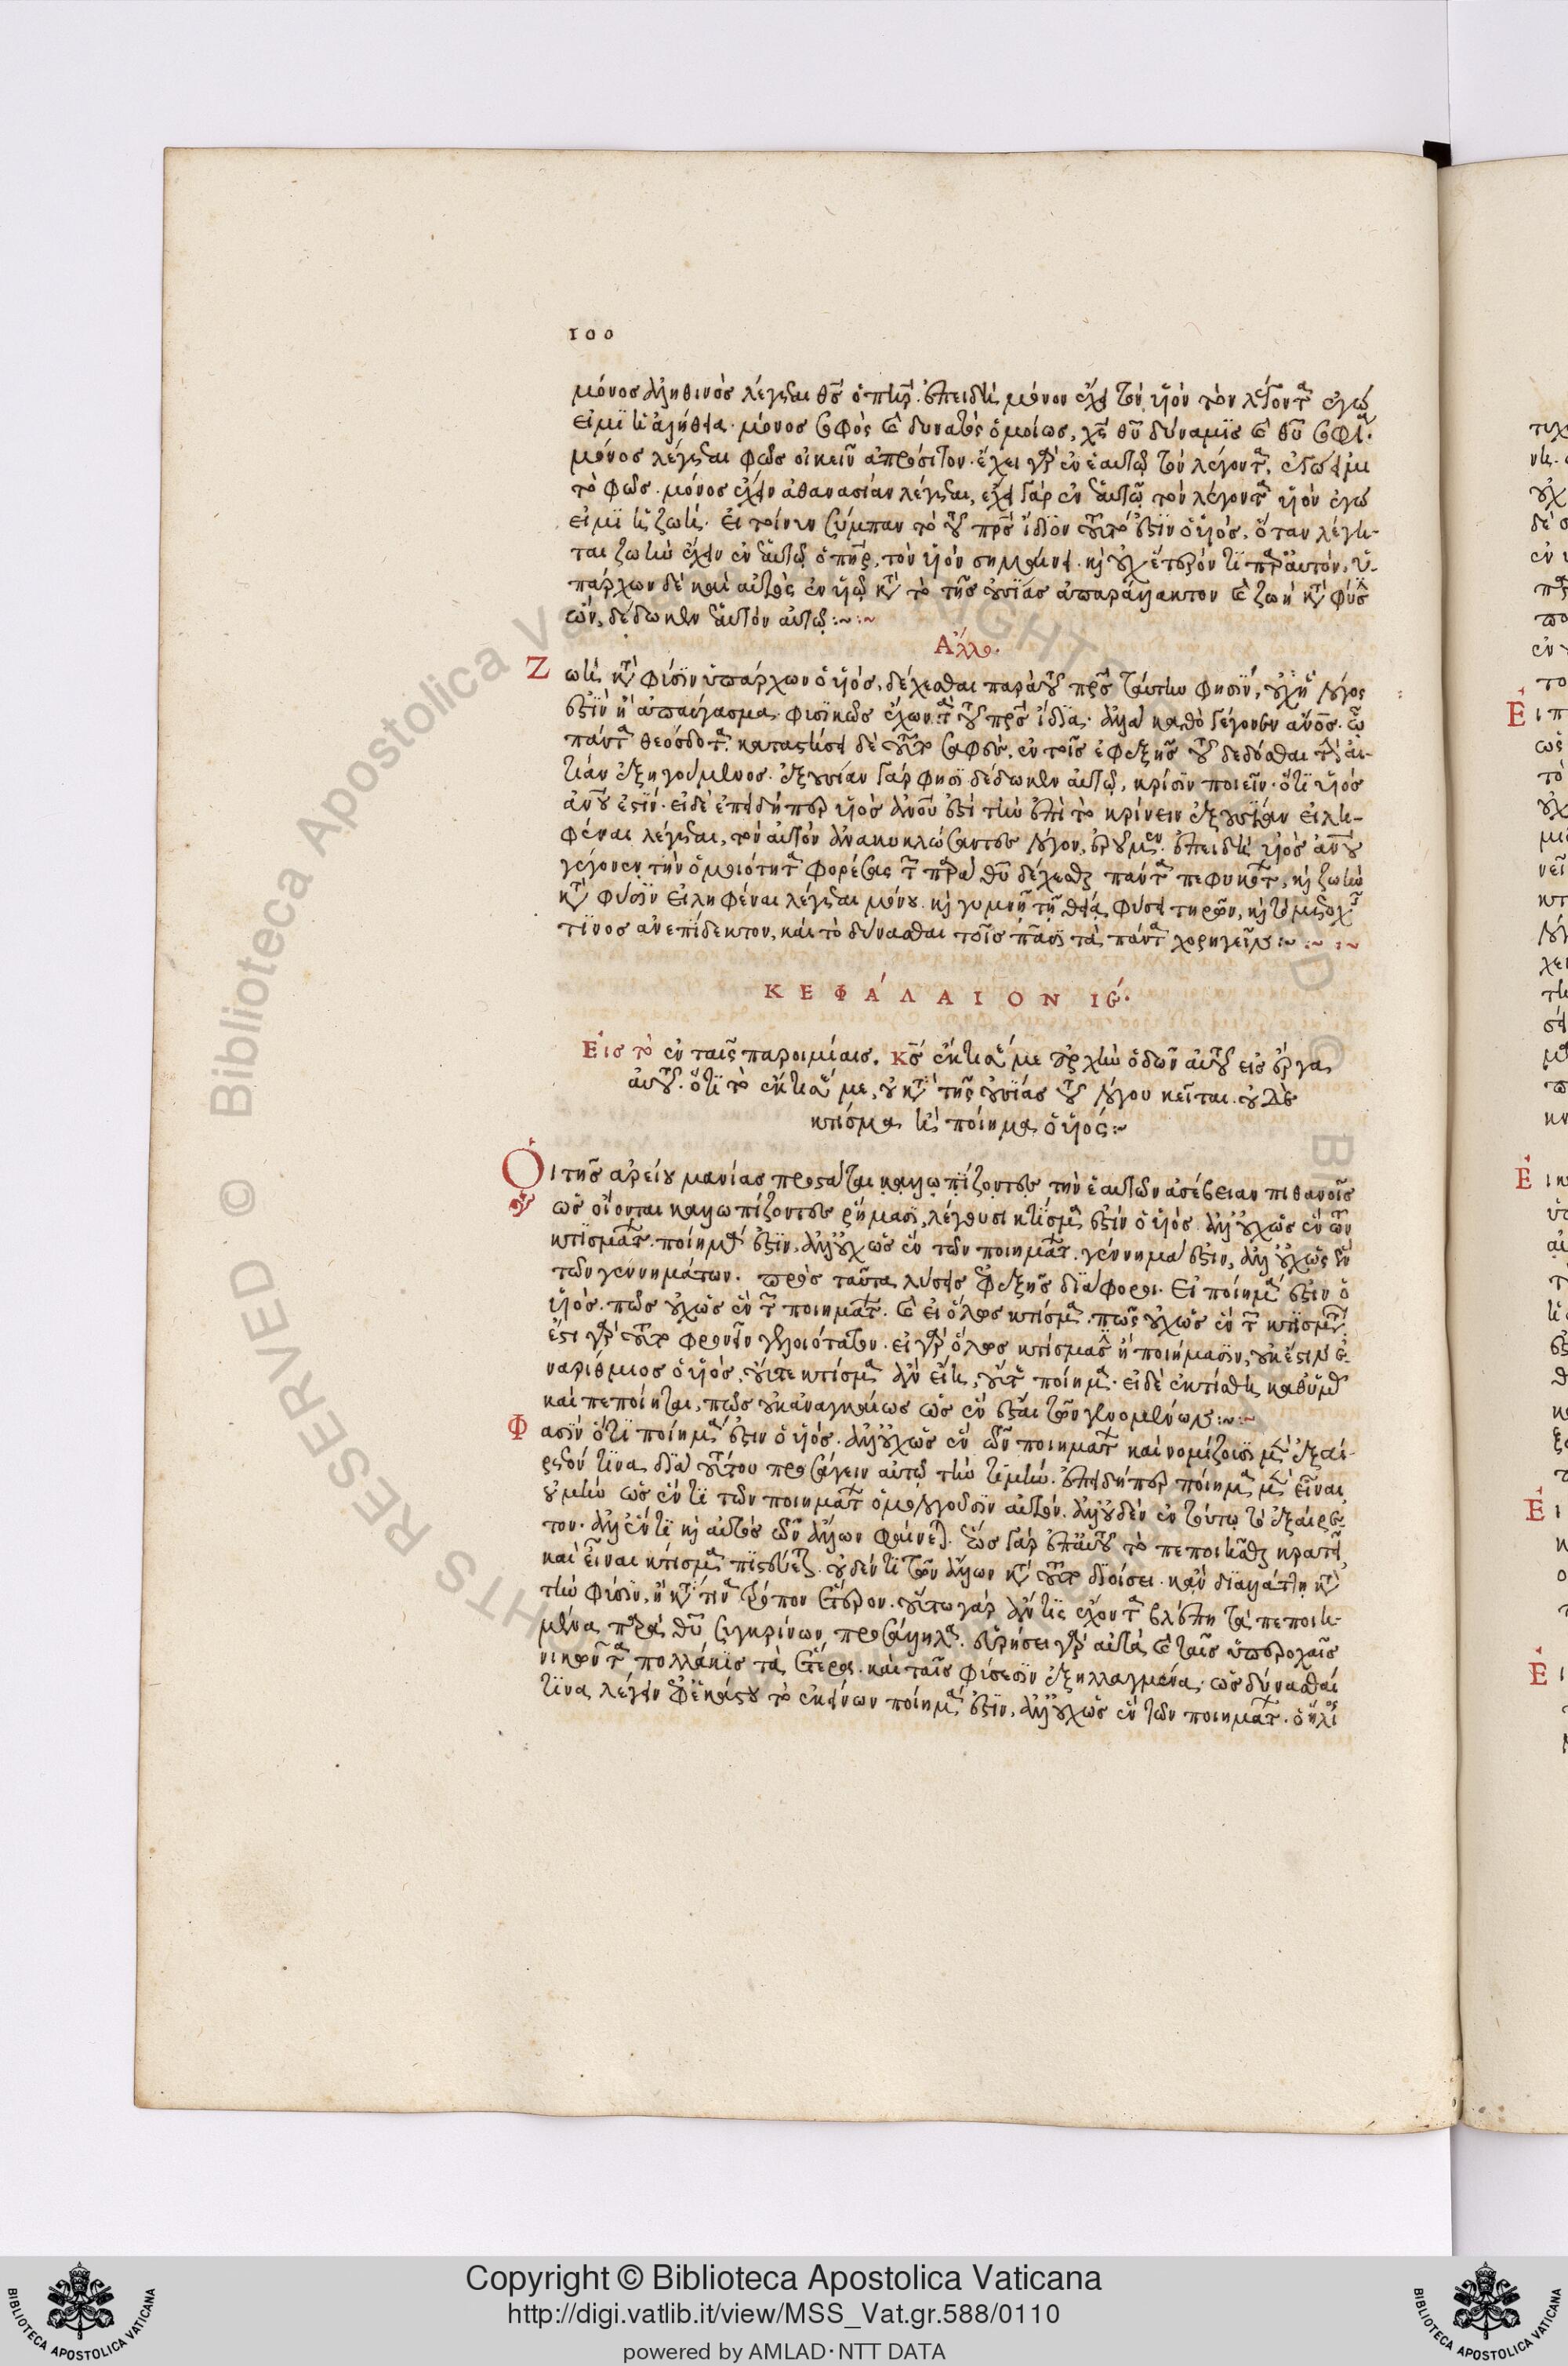 100
μόνος ἀληθινὸς λέγεται θς ὁ πηρ. ἐπειδὴ μόνον ἔχει τὸν υἱὸν τὸν λέγοντα ἐγώ
εἰμι ἡ ἀλήθεια. μόνος σοφὸς καὶ δυνατὸς ὁμοίως, χς θυ δύναμις καὶ θυ σοφία.
μόνος λέγεται φῶς οἰκεῖν ἀπρόσιτον. ἔχει γὰρ ἐν ἑαυτῷ τὸν λέγοντα, ἐγώ εἰμι
τὸ φῶς. μόνος ἔχειν ἀθανασίαν λέγεται, ἔχει γὰρ ἐν ἑαυτῷ τὸν λέγοντα υἱὸν ἐγώ
εἰμι ἡ ζωή. εἰ τοίνυν σύμπαν τὸ τοῦ πρς ἴδιον τοῦτό ἐστιν ὁ υἱός, ὅταν λέγη-
ται ζωὴν ἔχειν ἐν ἑαυτῷ ὁ πηρ, τὸν υἱὸν σημαίνει. καὶ οὐχ ἕτερόν τι παρ' αὐτόν, ὑ-
πάρχων δὲ καὶ αὐτὸς ἐν υἱῷ κατὰ τὸ τῆς οὐσίας ἀπαράλλακτον καὶ ζωὴ κατὰ φύσιν
ὤν, δέδωκεν ἑαυτὸν αὐτῷ :~:~
Ἄλλο.
Ζωὴ κατὰ φύσιν ὑπάρχων ὁ υἱός, δέχεσθαι παρὰ τοῦ πρς ταύτην φησίν, οὐχ ᾗ λόγος
ἐστὶν ἢ ἀπαύγασμα φυσικῶς ἔχων τὰ τοῦ πρς ἴδια. ἀλλὰ καθὸ γέγονεν ἄνος. ᾧ
πάντα θεόσδοτα. καταστήσει δὲ τοῦτο σαφὲς, ἐν τοῖς ἐφεξῆς τοῦ δεδόσθαι τὴν αἰ-
τίαν ἐξηγούμενος. ἐξουσίαν γάρ φησι δέδωκεν αὐτῷ, κρίσιν ποιεῖν. ὅτι υἱὸς
ἀνου ἐστίν. εἰ δὲ ἐπειδήπερ υἱὸς ἀνου ἐστὶ τὴν ἐπὶ τὸ κρίνειν ἐξουσίαν εἰλη-
φέναι λέγεται, τὸν αὐτὸν ἀνακυκλώσαντες λόγον, ἐροῦμεν. ἐπειδὴ υἱὸς ἀνου
γέγονεν τὴν ὁμοιότητα φορέσας τοῦ παρὰ θυ δέχεσθαι πάντα πεφυκότος, καὶ ζωὴν
κατὰ φύσιν εἰληφέναι λέγεται μόνου. καὶ γυμνῇ τῇ θείᾳ φύσει τηρῶν, καὶ τὸ μετοχῆς
τινος ἀνεπίδεκτον, καὶ τὸ δύνασθαι τοῖς πᾶσι τὰ πάντα χορηγεῖν :~:~:~
ΚΕΦΆΛΑΙΟΝ ΙΕ.
Εἰς τὸ ἐν ταῖς παροιμίαις. κς ἔκτισέ με ἀρχὴν ὁδῶν αὐτοῦ εἰς ἔργα
αὐτοῦ. ὅτι τὸ ἔκτισέ με, οὐ κατὰ τῆς οὐσίας τοῦ λόγου κεῖται. οὐδὲ
κτίσμα ἢ ποίημα ὁ υἱός :~
Οἱ τῆς ἀρείου μανίας προστάται καλλωπίζοντες τὴν ἑαυτῶν ἀσέβειαν πιθανοῖς
ὡς οἴονται καλλωπίζοντες ῥήμασι, λέγουσι κτίσμα ἐστὶν ὁ υἱὸς ἀλλ' οὐχ ὡς ἓν τῶν
κτισμάτων. ποίημά ἐστιν, ἀλλ' οὐχ ὡς ἓν τῶν ποιημάτων. γέννημά ἐστιν, ἀλλ' οὐχ ὡς ἓν
τῶν γεννημάτων. πρὸς ταῦτα λύσεις ἐφεξῆς διάφοροι. Εἰ ποίημά ἐστιν ὁ
υἱός. πῶς οὐχ ὡς ἓν τῶν ποιημάτων. καὶ εἰ ὅλως κτίσμα. πῶς οὐχ ὡς ἓν τῶν κτισμάτων
ἔστι γὰρ τοῦτο φρονεῖν γελοιότατον. εἰ γὰρ ὅλως κτίσμασιν ἢ ποιήμασιν, οὐκ ἔστιν ἐ-
ναρίθμιος ὁ υἱός, οὔτε κτίσμα ἂν εἴη, οὔτε ποίημα. εἰ δὲ ἐκτίσθη καθ' ὑμᾶς
καὶ πεποίηται, πῶς οὐκ ἀναγκαίως ὡς ἓν ἔσται τῶν γενομένων :~:~
Φασὶν ὅτι ποίημά ἐστιν ὁ υἱός. ἀλλ' οὐχ ὡς ἓν τῶν ποιημάτων καὶ νομίζουσι μὲν ἐξαί-
ρετόν τινα διὰ τούτου προσάγειν αὐτῷ τὴν τιμήν. ἐπειδήπερ ποίημα μὲν εἶναι
οὐ μὴν ὡς ἕν τι τῶν ποιημάτων ὁμολογοῦσιν αὐτόν. ἀλλ' οὐδὲν ἐν τούτῳ τὸ ἐξαίρε-
τον. ἀλλ' ἕν τι καὶ αὐτὸς τῶν ἄλλων φαίνεται. ἕως γὰρ ἐπ' αὐτοῦ τὸ πεποιῆσθαι κρατεῖ,
καὶ εἶναι κτίσμα πιστεύεται. οὐδέν τι τῶν ἄλλων κατὰ τοῦτο διοίσει. κἂν διαλλάττῃ κατὰ
τὴν φύσιν, ἢ κατά τινα τρόπον ἕτερον. οὕτω γὰρ ἄν τις ἔχοντα βλέπῃ τὰ πεποιη-
μένα παρὰ θυ συγκρίνων πρὸς ἄλληλα. εὑρήσει γὰρ αὐτὰ καὶ ταῖς ὑπεροχαῖς
νικῶντα πολλάκις τὰ ἕτερα. καὶ ταῖς φύσεσιν ἐξηλλαγμένα. ὡς δύνασθαί
τινα λέγειν ἐφ' ἑκάστου τὸ ἐκείνων ποίημά ἐστιν, ἀλλ' οὐχ ὡς ἓν τῶν ποιημάτων. ὁ ἥλιος
Copyright © Biblioteca Apostolica Vaticana
http://digi.vatlib.it/view/MSS_Vat.gr.588/0110
powered by AMLAD·NTT DATA